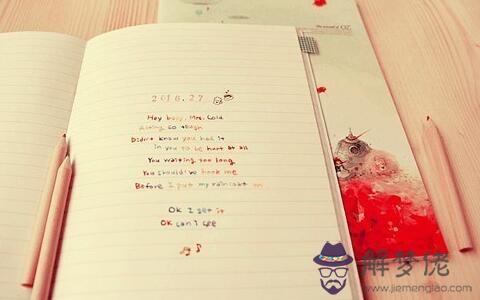 2016.27
Hey baby, Mrs. Cold
Acting so tough
Didn't know you had it
in you to be hurt at all
You waiting too long
You should've hook me
Before I put my raincoat on
OK I get it
OK can I see
OZ
解梦佬
www.jiemenglao.com